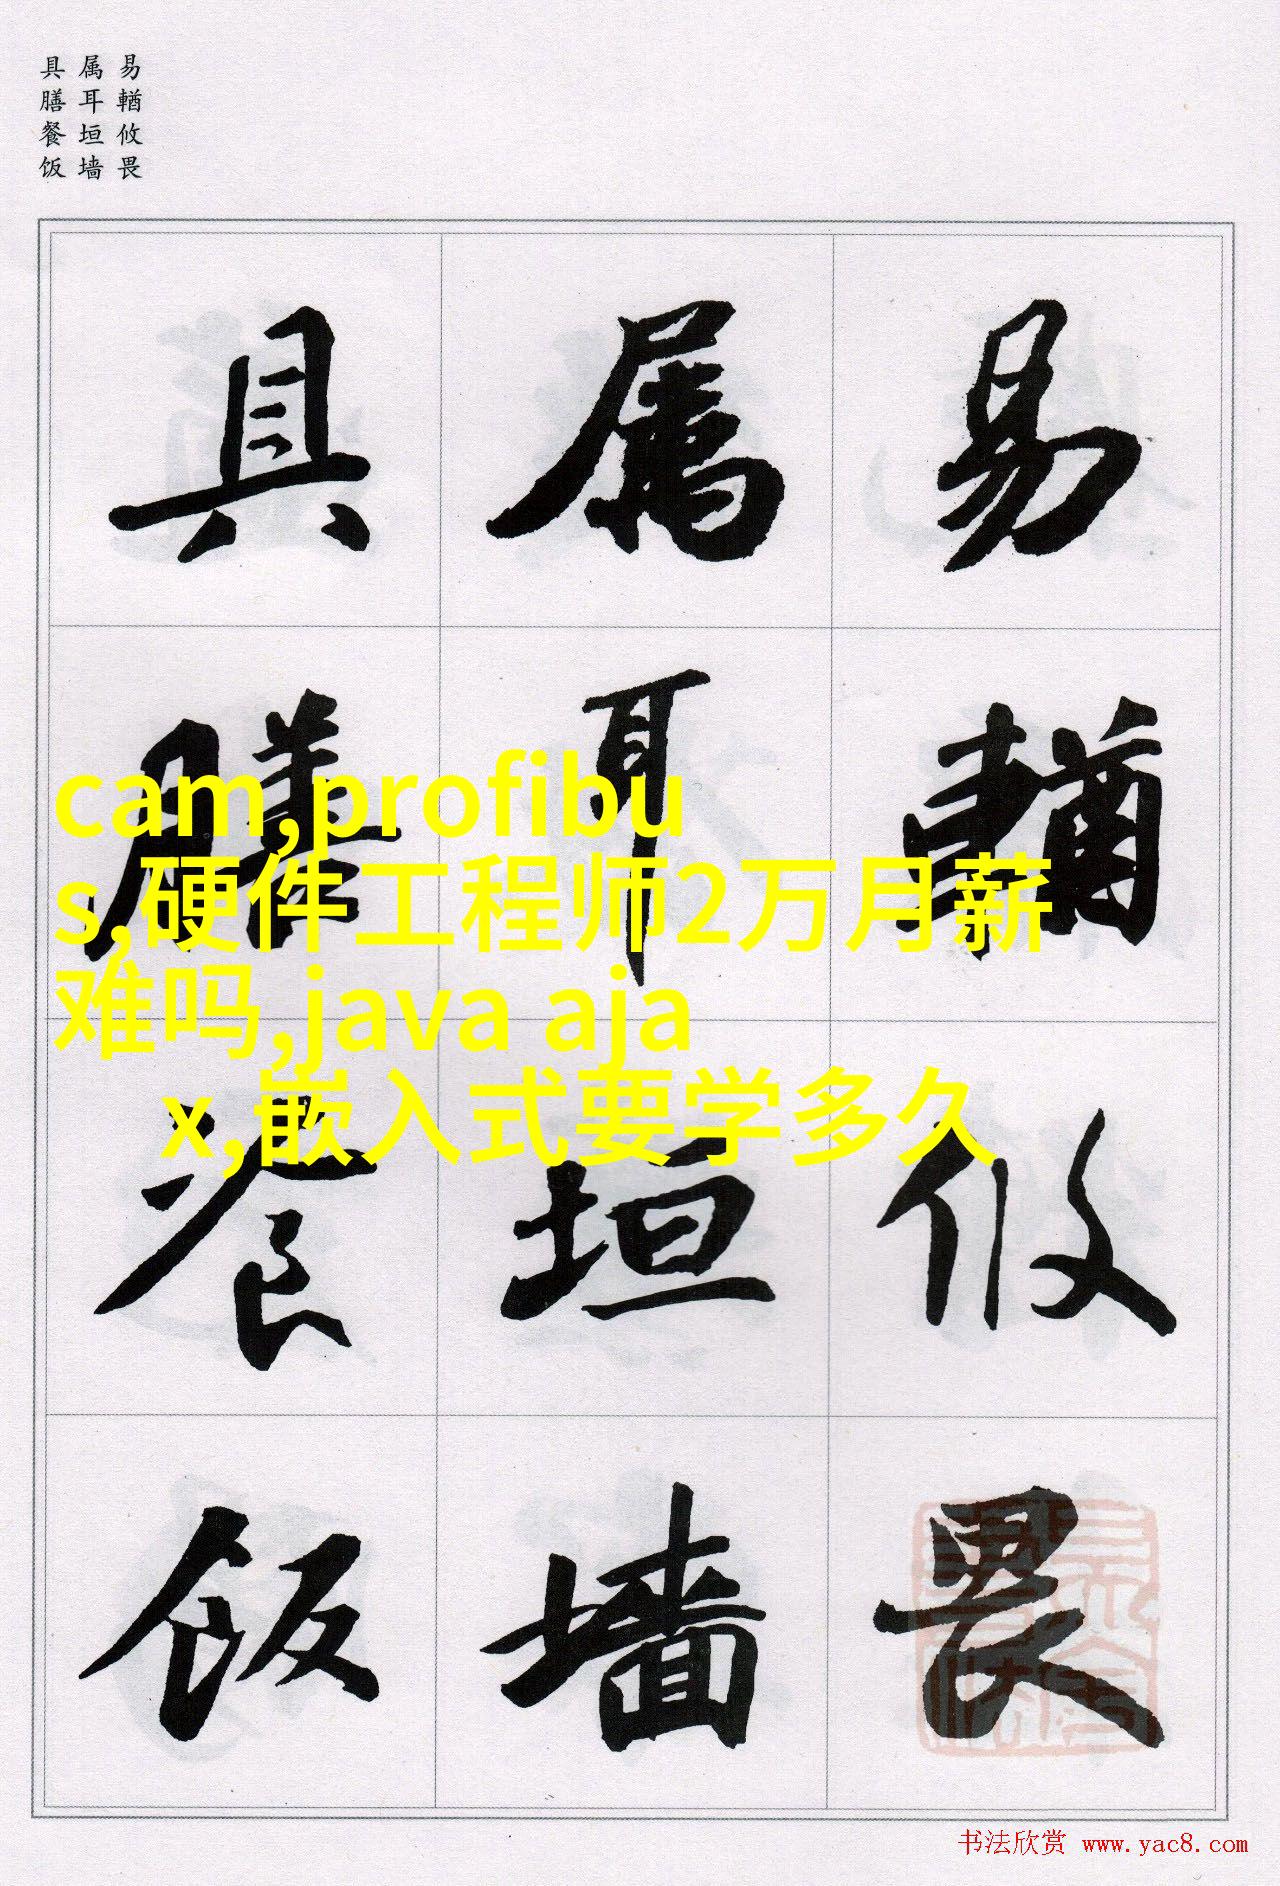 易輶攸畏
属耳垣墙
具膳餐饭
易
輶
攸
畏
属
耳
垣
墙
具
膳
餐
饭
cam,profibu
s,硬件工程师2万月薪
难吗,java aja
x,嵌入式要学多久
书法欣赏 www.yac8.com